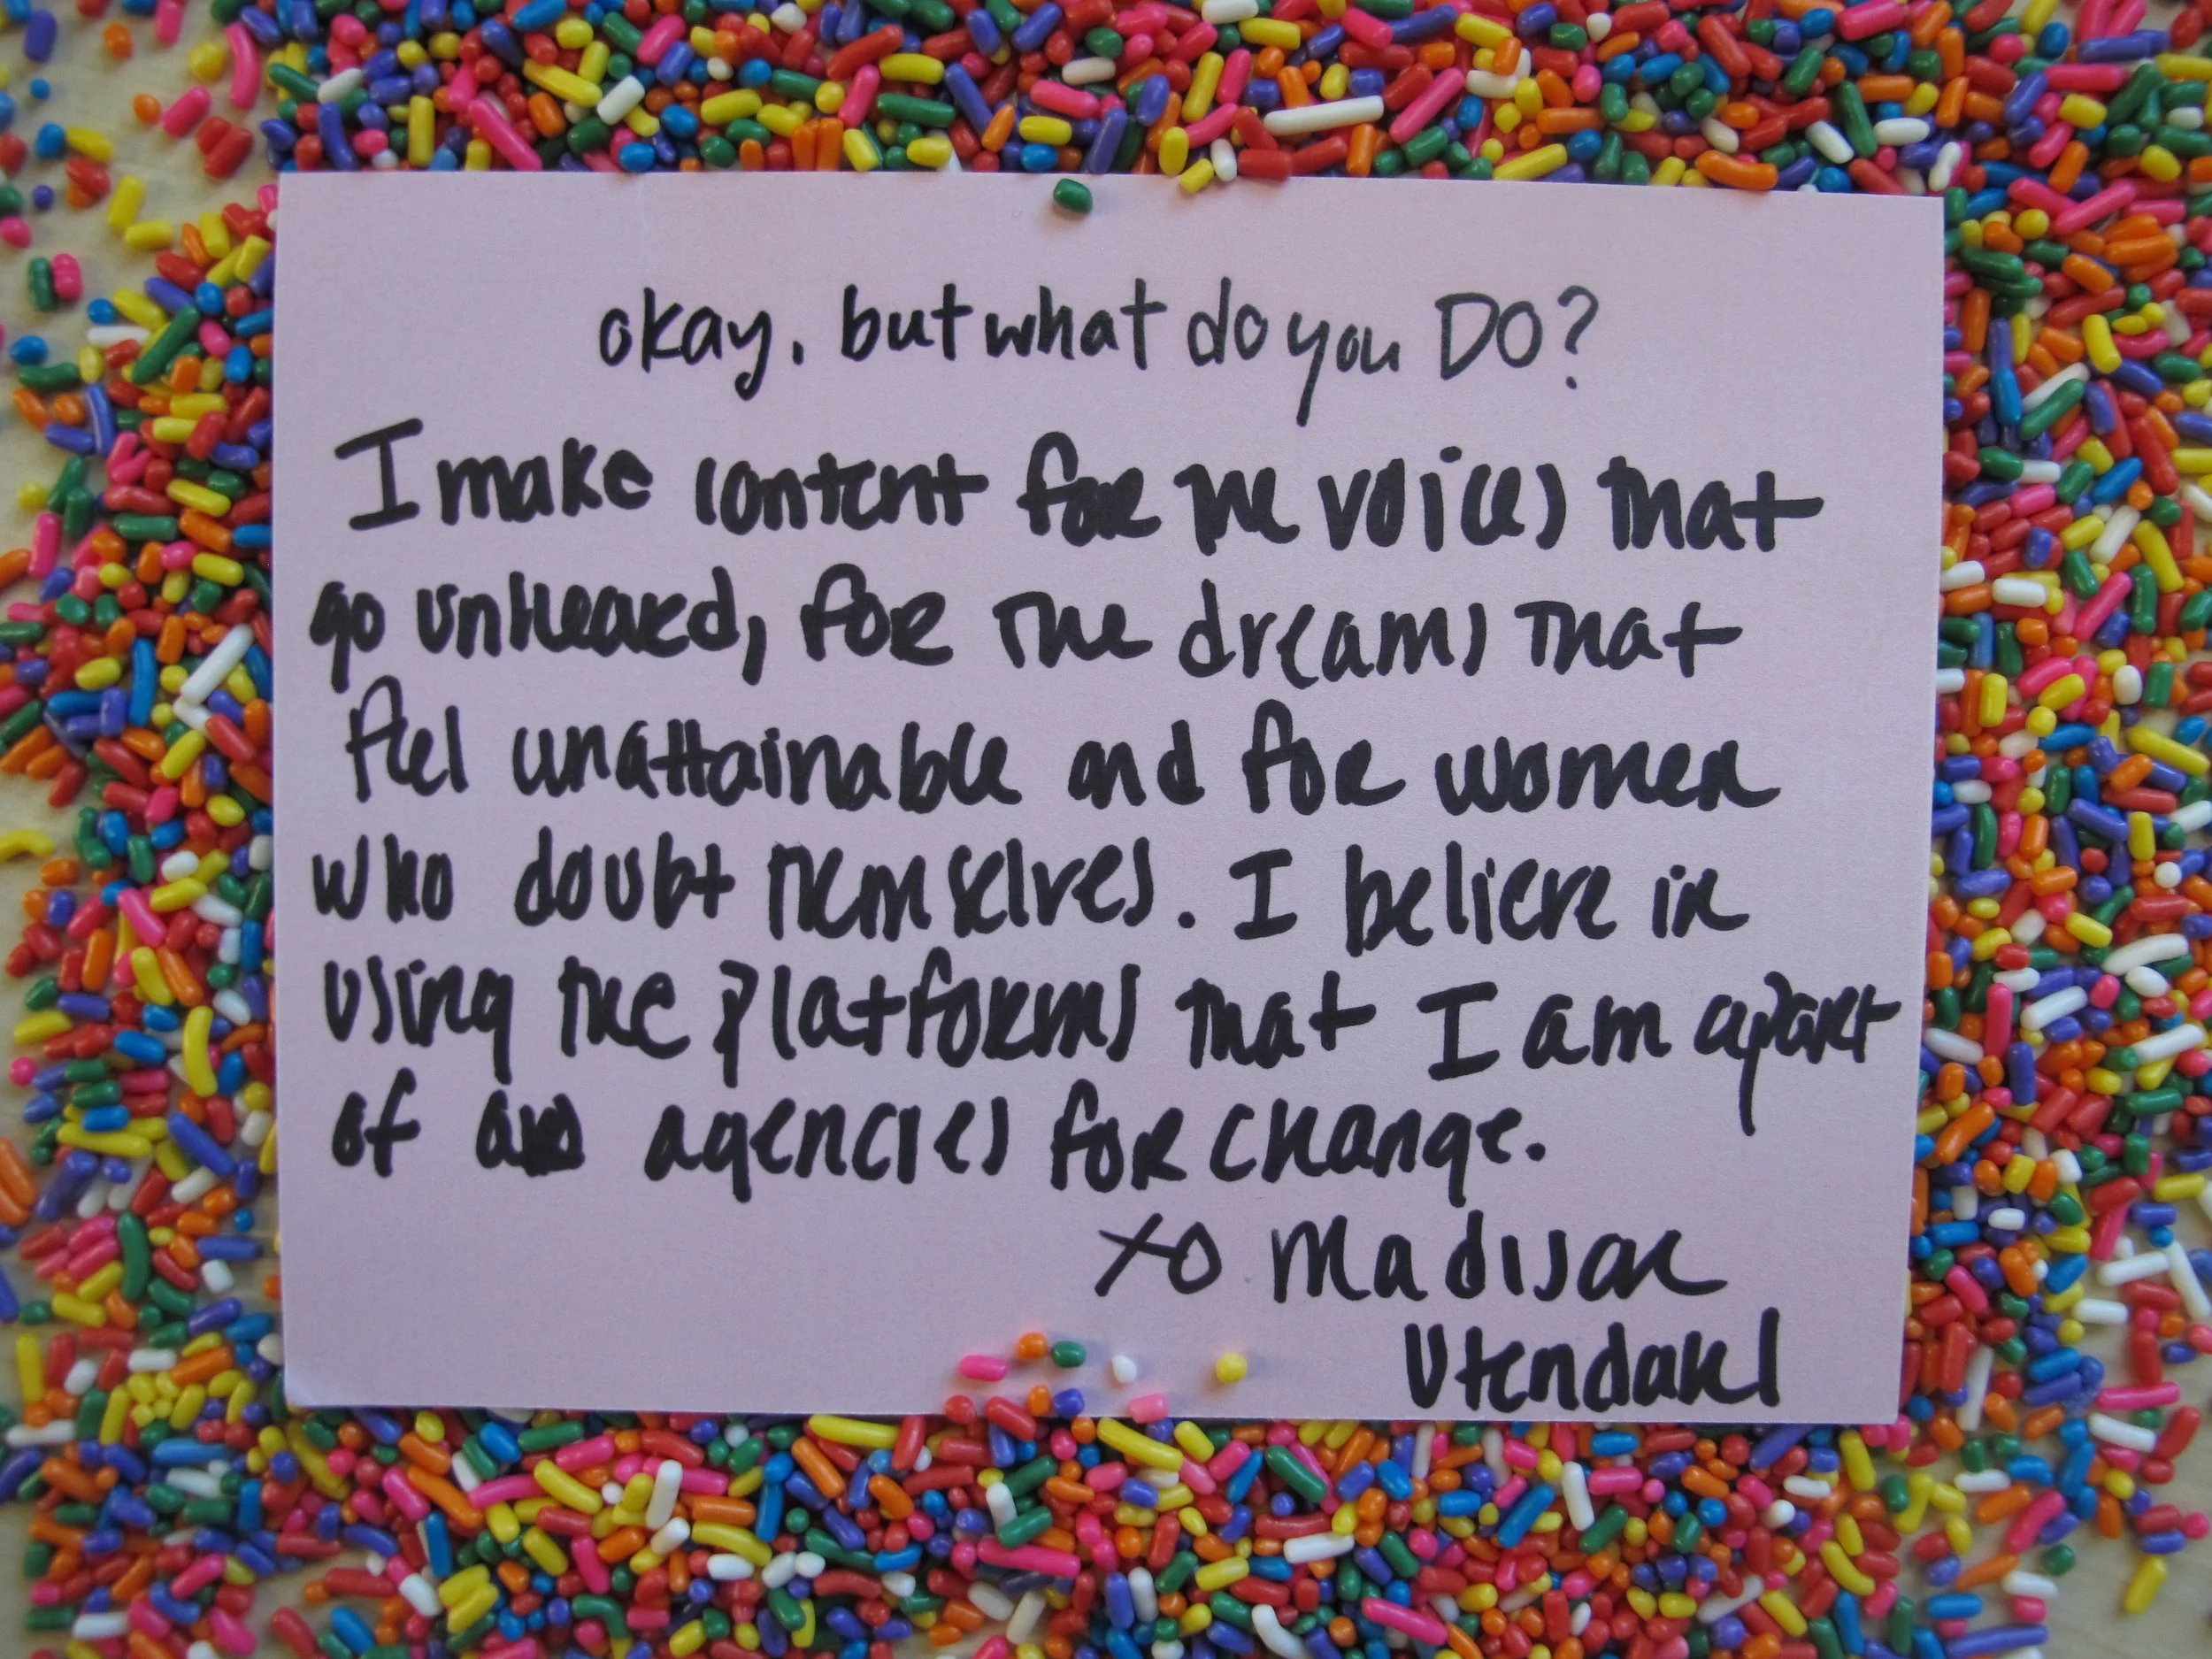 okay, but what do you DO?
I make content for the voices that
go unheard, for the dreams that
feel unattainable and for women
who doubt themselves. I believe in
using the platforms that I am apart
of as agencies for change.
XO Madison
Utendahl